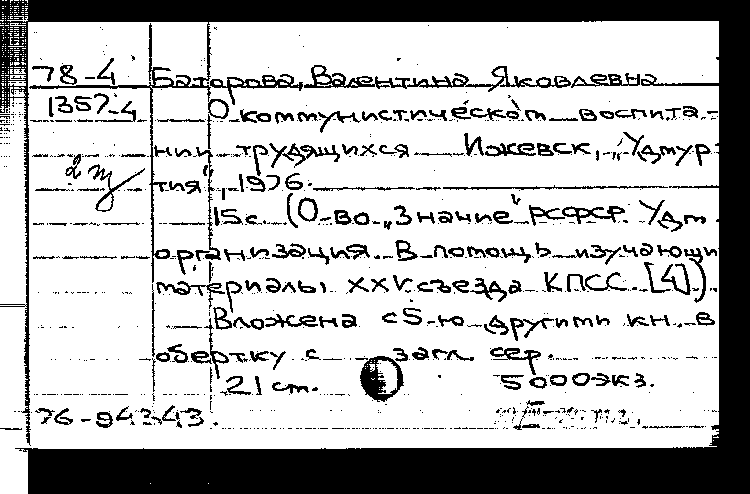 78-4 Баторова, Валентина Яковлевна
1357-4 О коммунистическом воспита-
нии трудящихся Ижевск, „Удмур-
2 тия", 1976.
15с. (О-во „Знание" РСФСР. Удм.
организация. В помощь изучающи
материалы XXV съезда КПСС. [4]).
Вложена с 5-ю другими кн. в
обертку с загл. сер.
21 см. 5000 экз.
76-84343.